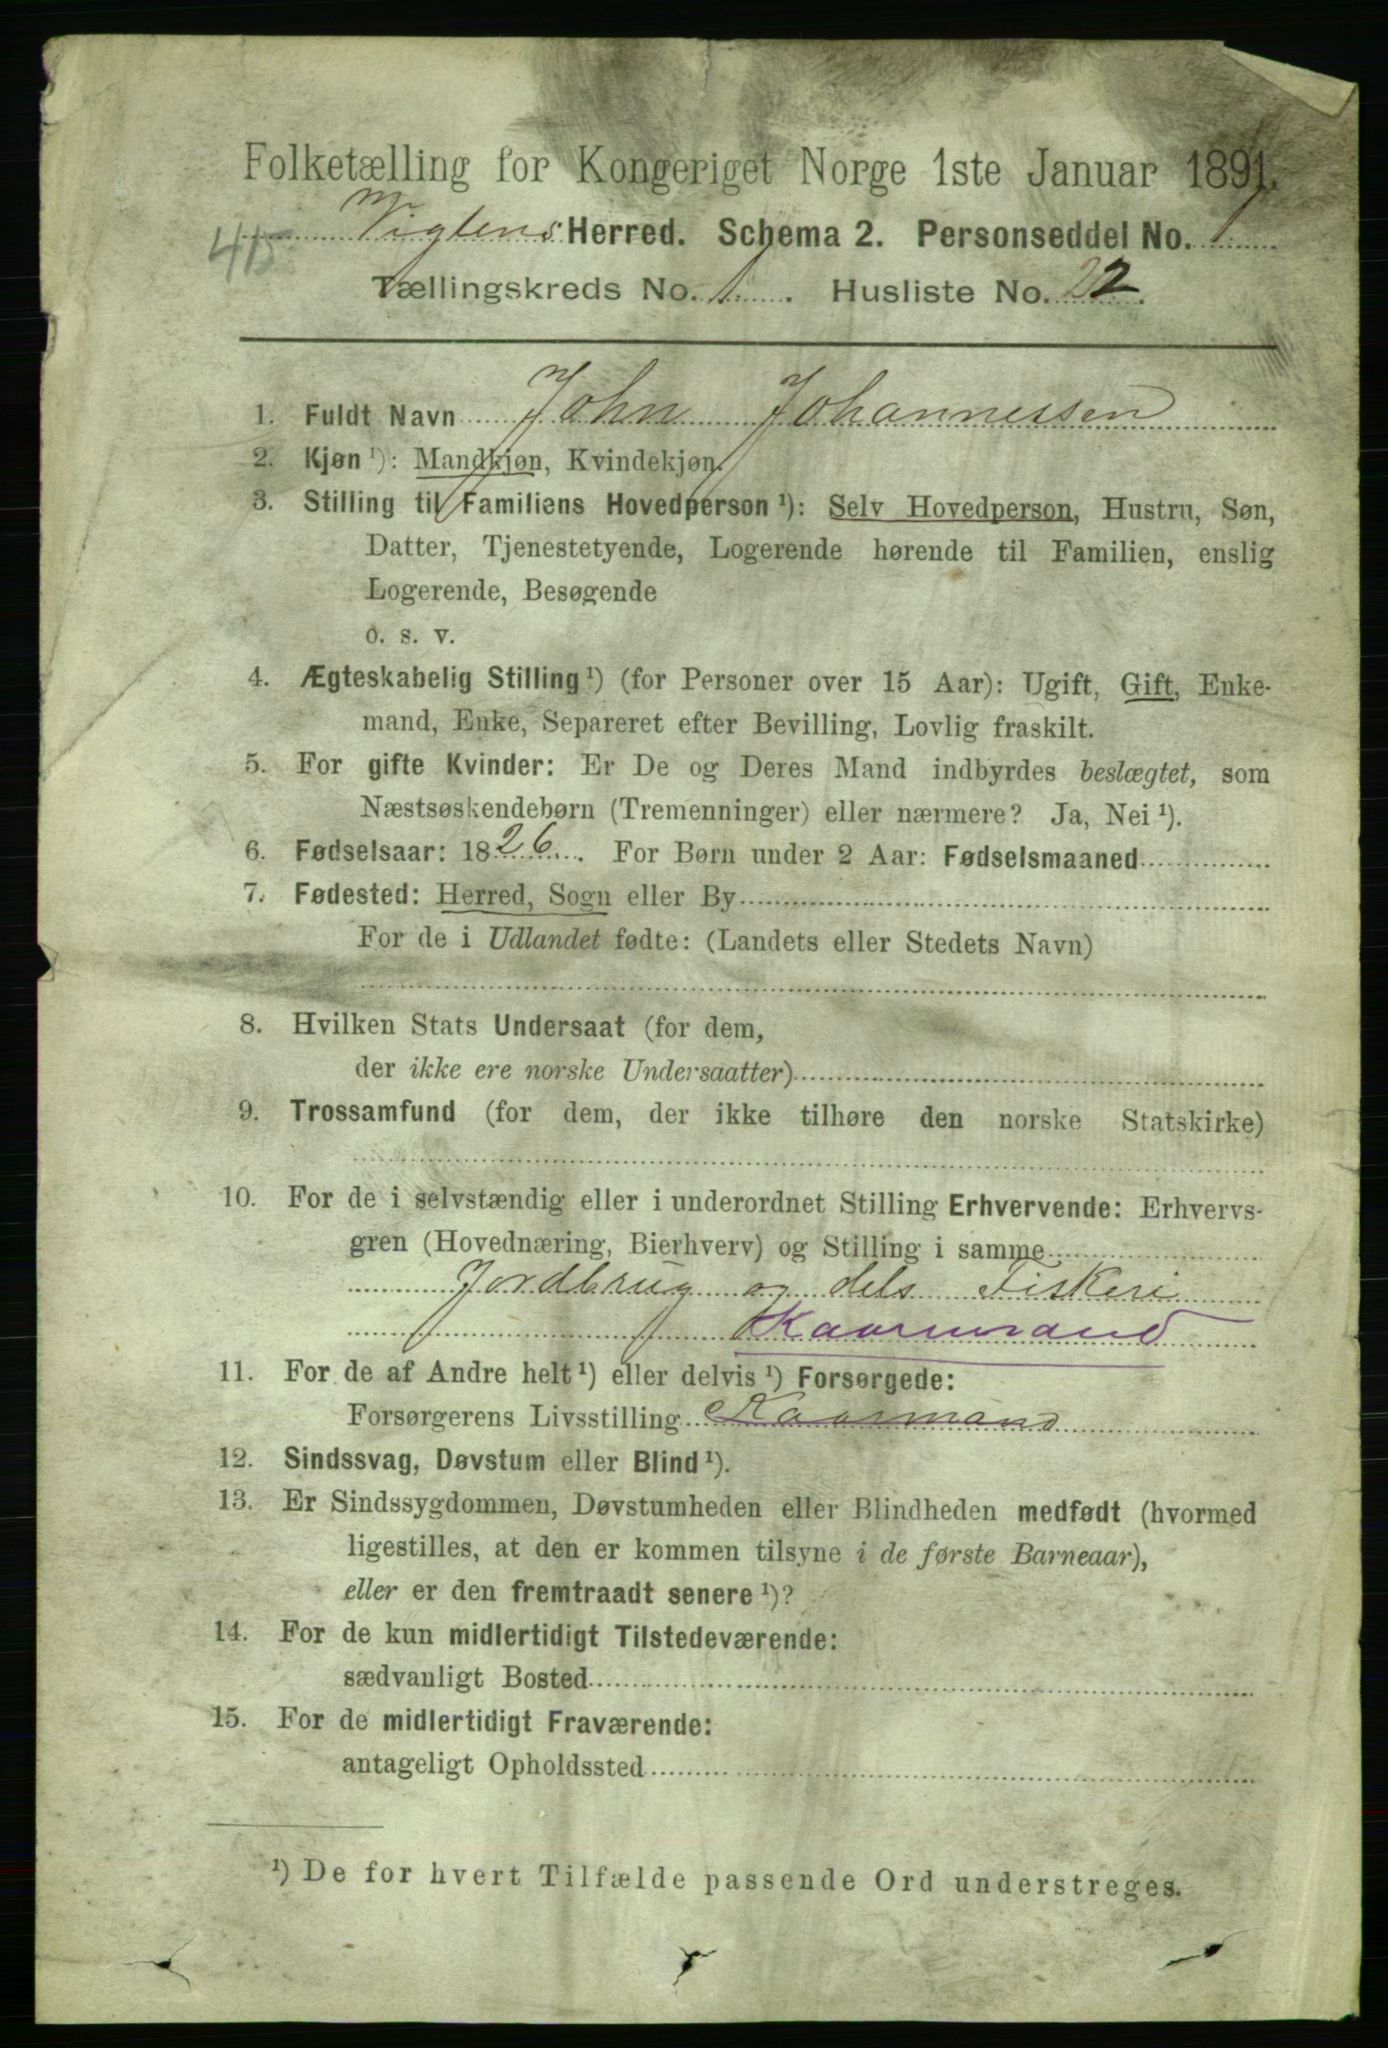 Folketælling for Kongeriget Norge 1ste Januar 1891.
415 Vigtens Herred. Schema 2. Personseddel No. 1
Tællingskreds No. 1. Husliste No. 22.
1. Fuldt Navn John Johannessen
2. Kjøn¹): Mandkjøn, Kvindekjøn.
3. Stilling til Familiens Hovedperson¹): Selv Hovedperson, Hustru, Søn,
Datter, Tjenestetyende, Logerende hørende til Familien, enslig
Logerende, Besøgende
o. s. v.
4. Ægteskabelig Stilling¹) (for Personer over 15 Aar): Ugift, Gift, Enke-
mand, Enke, Separeret efter Bevilling, Lovlig fraskilt.
5. For gifte Kvinder: Er De og Deres Mand indbyrdes beslægtet, som
Næstsøskendebørn (Tremenninger) eller nærmere? Ja, Nei¹).
6. Fødselsaar: 1826. For Børn under 2 Aar: Fødselsmaaned
7. Fødested: Herred, Sogn eller By
For de i Udlandet fødte: (Landets eller Stedets Navn)
8. Hvilken Stats Undersaat (for dem,
der ikke ere norske Undersaatter)
9. Trossamfund (for dem, der ikke tilhøre den norske Statskirke)
10. For de i selvstændig eller i underordnet Stilling Erhvervende: Erhvervs-
gren (Hovednæring, Bierhverv) og Stilling i samme
Jordbrug og dels Fiskeri
Kaarmand
11. For de af Andre helt¹) eller delvis¹) Forsørgede:
Forsørgerens Livsstilling Kaarmand
12. Sindssvag, Døvstum eller Blind¹).
13. Er Sindssygdommen, Døvstumheden eller Blindheden medfødt (hvormed
ligestilles, at den er kommen tilsyne i de første Barneaar),
eller er den fremtraadt senere¹)?
14. For de kun midlertidigt Tilstedeværende:
sædvanligt Bosted
15. For de midlertidigt Fraværende:
antageligt Opholdssted
¹) De for hvert Tilfælde passende Ord understreges.